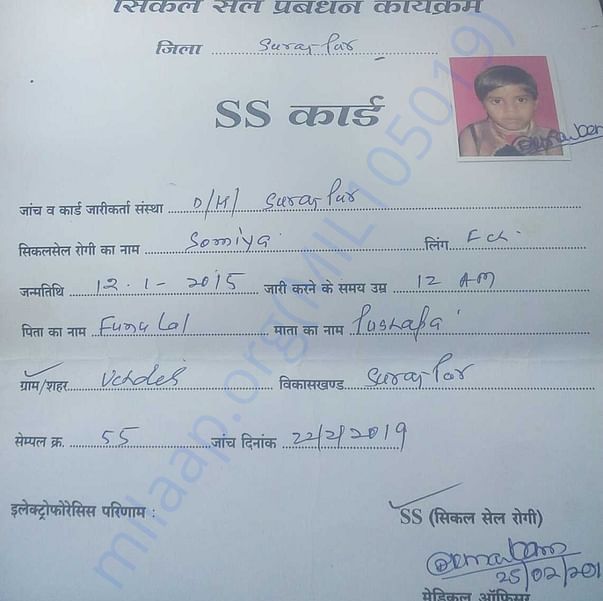 सिकल सेल प्रबंधन कार्यक्रम
जिला Surajpur
SS कार्ड
जांच व कार्ड जारीकर्ता संस्था D/H/ Surajpur
सिकलसेल रोगी का नाम Somiya लिंग F ch.
जन्मतिथि 12-1-2015 जारी करने के समय उम्र 12 AM
पिता का नाम Lal माता का नाम Pushapa
ग्राम/शहर विकासखण्ड Surajpur
सेम्पल क्र. 55 जांच दिनांक 22/2/2019
इलेक्ट्रोफोरेसिस परिणाम :
SS (सिकल सेल रोगी)
25/02/201
मेडिकल ऑफिसर
milaap.org(MIL1105019)